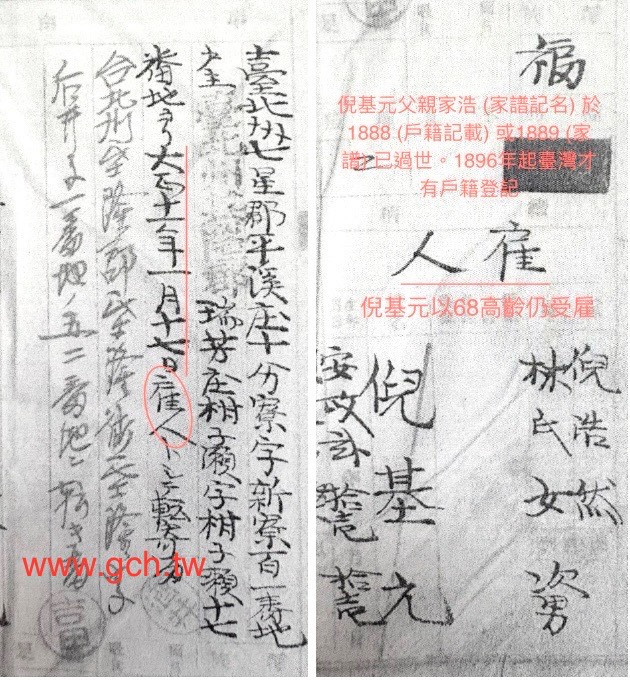 臺北州七星郡平溪庄十分寮字新寮百一番地
瑞芳庄柑子瀨字柑子瀨十七
番地ヨリ大正十一年一月十七日雇人トシテ轉寄留
台北州基隆郡基隆街基隆字
石井子一番地ノ五二番地ニ轉寄留
www.gch.tw
福
倪基元父親家浩 (家譜記名) 於
1888 (戶籍記載) 或1889 (家
譜) 已過世。1896年起臺灣才
有戶籍登記
雇人
倪基元以68高齡仍受雇
倪浩然
林氏女
勇
倪基元
安政